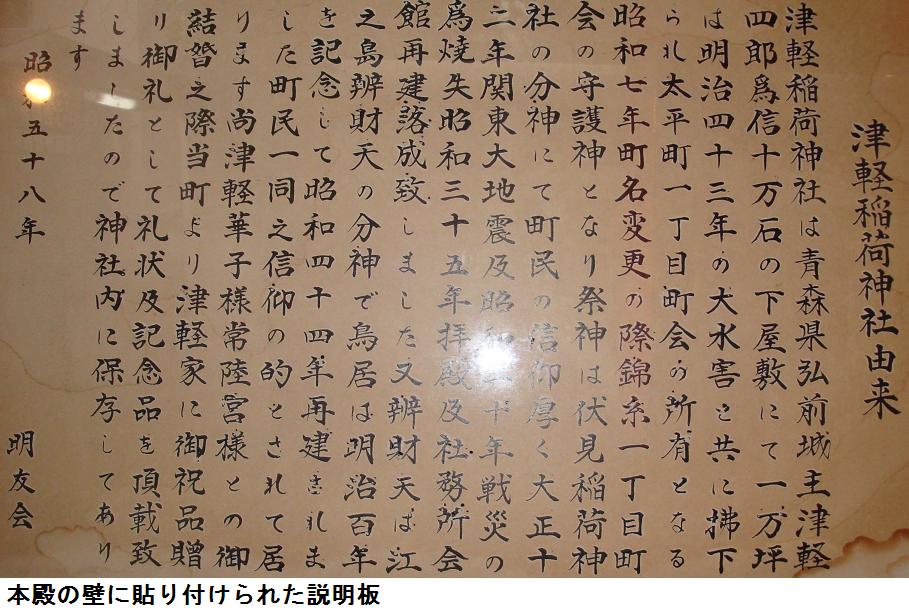 津軽稲荷神社由来
津軽稲荷神社は青森県弘前城主津軽
四郎爲信十万石の下屋敷にて一万坪
は明治四十三年の大水害と共に拂下
られ太平町一丁目町会の所有となる
昭和七年町名変更の際錦糸一丁目町
会の守護神となり祭神は伏見稲荷神
社の分神にて町民の信仰厚く大正十
二年関東大地震及昭和二十年戦災の
爲焼失昭和三十五年拝殿及社務所会
館再建落成致しました又辨財天は江
之島辨財天の分神で鳥居は明治百年
を記念して昭和四十四年再建されま
した町民一同之信仰の的とされて居
ります尚津軽華子様常陸宮様との御
結婚之際当町より津軽家に御祝品贈
り御礼として礼状及記念品を頂載致
しましたので神社内に保存してあり
ます
昭和五十八年
明友会
本殿の壁に貼り付けられた説明板